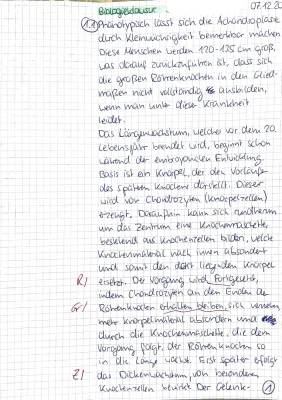 Biologieklausur 07.12.20
1.1 Phänotypisch lässt sich die Achondroplasie
durch Kleinwüchsigkeit bemerkbar machen.
Diese Menschen werden 120-135 cm groß,
was darauf zurückzuführen ist, dass sich
die großen Röhrenknochen in den Glied-
maßen nicht vollständig ausbilden,
wenn man unter dieser Krankheit
leidet.
Das Längenwachstum, welches vor dem 20.
Lebensjahr beendet wird, beginnt schon
während der embryonalen Entwicklung.
Basis ist ein Knorpel, der den Vorläufer
des späteren Knochens darstellt. Dieser
wird von Chondrozyten (Knorpelzellen)
erzeugt. Daraufhin kann sich rundherum
um das Zentrum eine Knochenmanschette
bestehend aus Knochenzellen bilden, welche
Knochenmaterial nach innen absondert
und somit den dort liegenden Knorpel
R/ ersetzt. Der Vorgang wird fortgesetzt,
indem Chondrozyten an den Enden der
Gr/ Röhrenknochen erhalten bleiben, sich
mehr Knorpelmaterial absondern und
durch die Knochenmanschette, die dem
Vorgang folgt, der Röhrenknochen so
in die Länge wächst. Erst später erfolgt
Z/ das Dickenwachstum, von besonderen
Knochenzellen bewirkt. Der Gelenk-
1